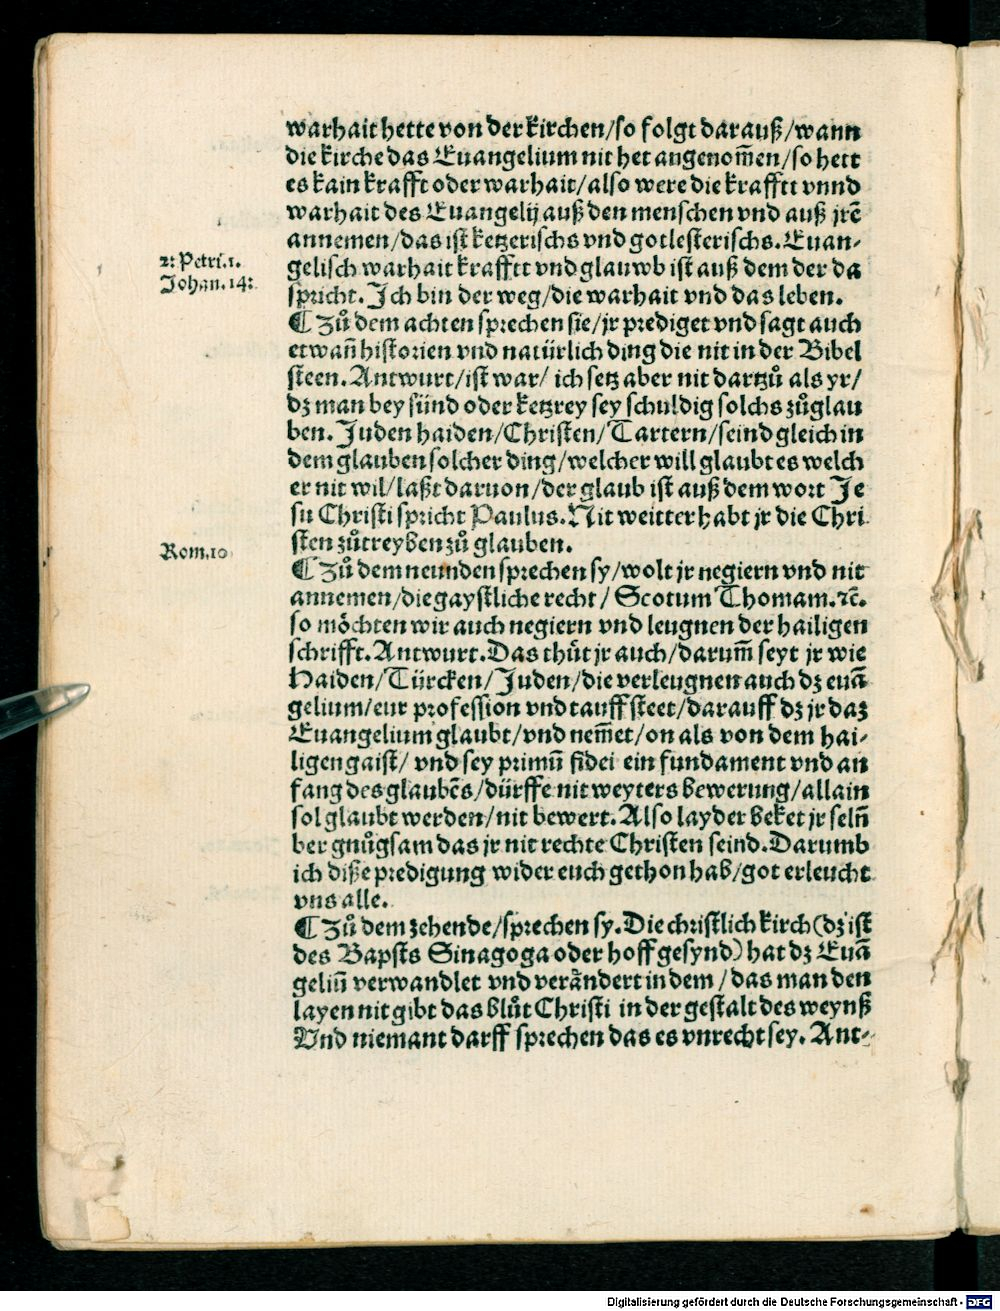 warhait hette von der kirchen/so folgt darauß/wann
die kirche das Euangelium nit het angenom̃en/so hett
es kain krafft oder warhait/also were die krafftt vnnd
warhait des Euangelij auß den menschen vnd auß jrẽ
annemen/das ist ketzerischs vnd gotlesterischs. Euan-
2. Petri. 1.
gelisch warhait krafftt vnd glauwb ist auß dem der da
Johan. 14.
spricht. Ich bin der weg/die warhait vnd das leben.
¶ Zů dem achten sprechen sie/jr prediget vnd sagt auch
etwañ historien vnd natürlich ding die nit in der Bibel
steen. Antwurt/ist war/ ich setz aber nit dartzů als yr/
dz man bey sünd oder ketzrey sey schuldig solchs zůglau
ben. Juden haiden/Christen/Tartern/seind gleich in
dem glauben solcher ding/welcher will glaubt es welch
er nit wil/laßt daruon/der glaub ist auß dem wort Je
su Christi spricht Paulus. Nit weitter habt jr die Chri
Rom. 10
sten zůtreyben zů glauben.
¶ Zů dem neunden sprechen sy/wolt jr negiern vnd nit
annemen/die gaystliche recht/ Scotum Thomam. ⁊c̃.
so möchten wir auch negiern vnd leugnen der hailigen
schrifft. Antwurt. Das thůt jr auch/darum̃ seyt jr wie
Haiden/Türcken/Juden/die verleugnen auch dz euã
gelium/eur profession vnd tauff steet/darauff dz jr daz
Euangelium glaubt/vnd nem̃et/on als von dem hai-
ligen gaist/ vnd sey primũ fidei ein fundament vnd an
fang des glaubẽs/dürffe nit weyters bewerung/allain
sol glaubt werden/nit bewert. Also layder beket jr selñ
ber gnůgsam das jr nit rechte Christen seind. Darumb
ich diße predigung wider euch gethon hab/got erleucht
vns alle.
¶ Zů dem zehende/sprechen sy. Die christlich kirch(dz ist
des Bapsts Sinagoga oder hoff gesynd) hat dz Euã
geliũ verwandlet vnd verändert in dem /das man den
layen nit gibt das blůt Christi in der gestalt des weynß
Vnd niemant darff sprechen das es vnrecht sey. Ant-
Digitalisierung gefördert durch die Deutsche Forschungsgemeinschaft - DFG